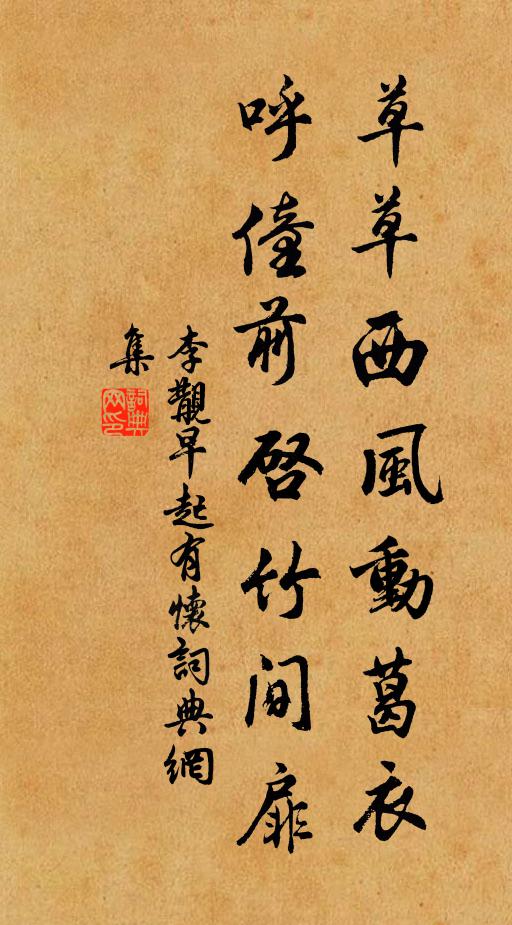 草草西風動葛衣
呼僮前啓竹間扉
李觀早起有懷詞典網
集
詞典
网印